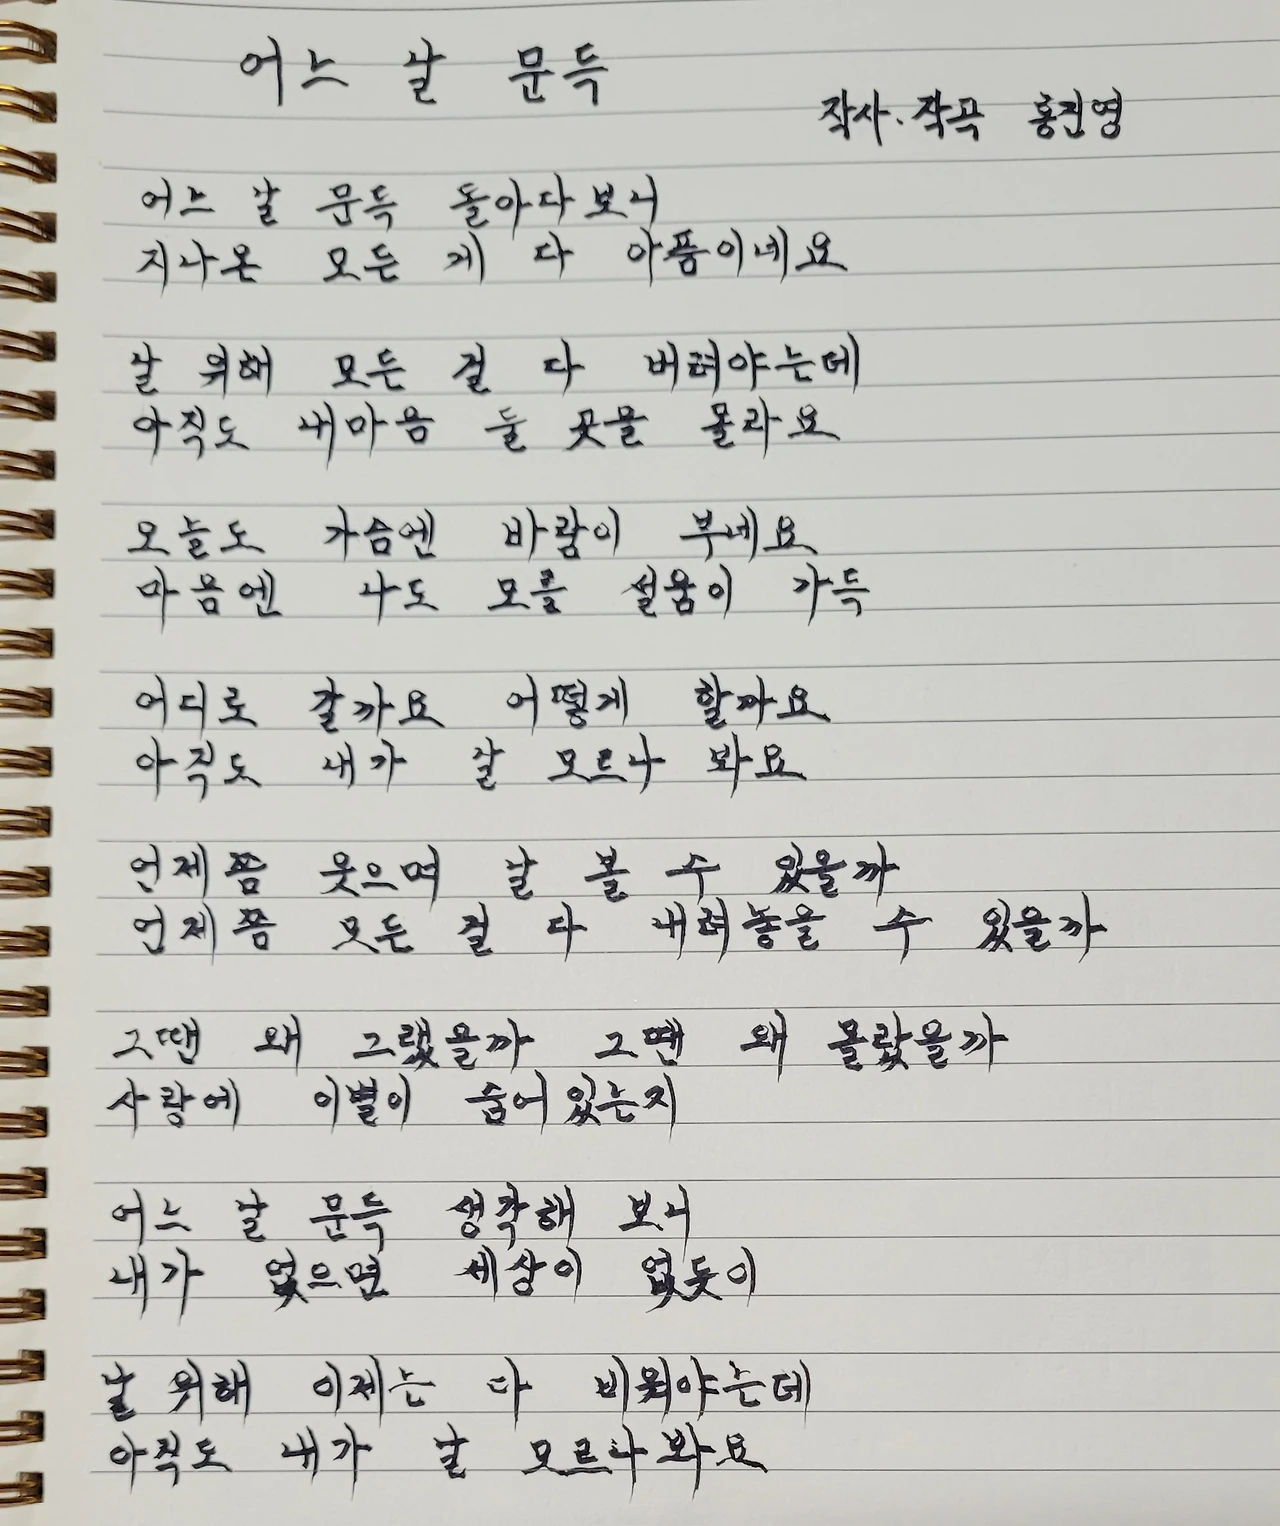 어느 날 문득
작사.작곡 홍진영
어느 날 문득 돌아다보니
지나온 모든 게 다 아픔이네요
날 위해 모든 걸 다 버려야는데
아직도 내마음 둘 곳을 몰라요
오늘도 가슴엔 바람이 부네요
마음엔 나도 모를 설움이 가득
어디로 갈까요 어떻게 할까요
아직도 내가 날 모르나 봐요
언제쯤 웃으며 날 볼 수 있을까
언제쯤 모든 걸 다 내려놓을 수 있을까
그땐 왜 그랬을까 그땐 왜 몰랐을까
사랑에 이별이 숨어있는지
어느 날 문득 생각해 보니
내가 없으면 세상이 없듯이
날 위해 이제는 다 비워야는데
아직도 내가 날 모르나봐요